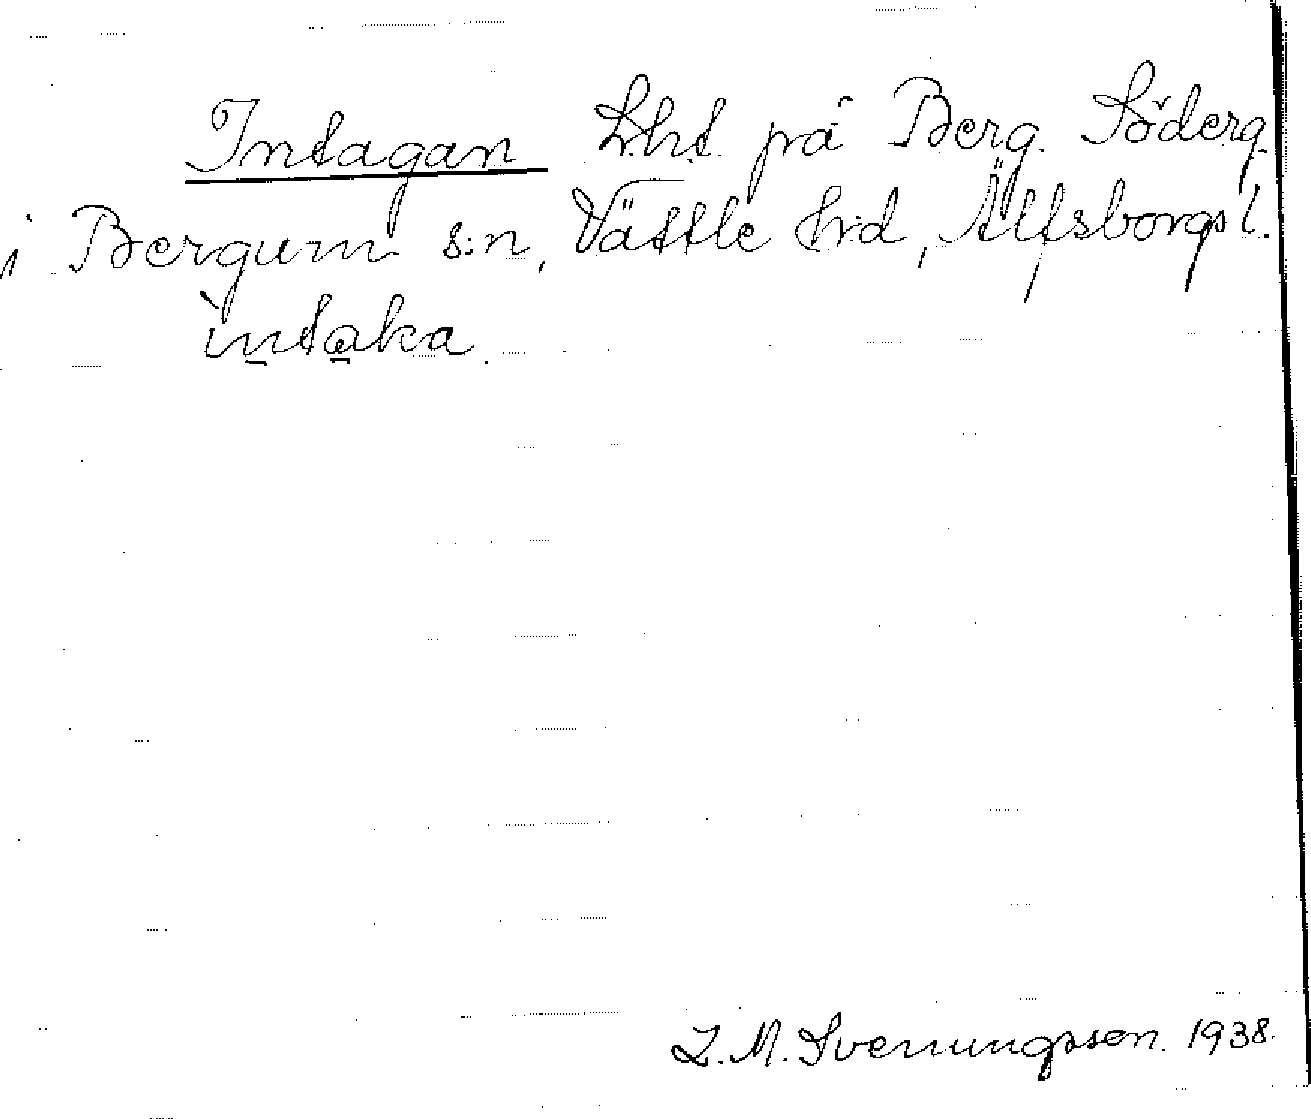 Intagan L.h.t. på Berg. Söderg.
i Bergum s:n, Vättle hd, Älfsborgs l.
ìntaka.
L. M. Svenungsson. 1938.